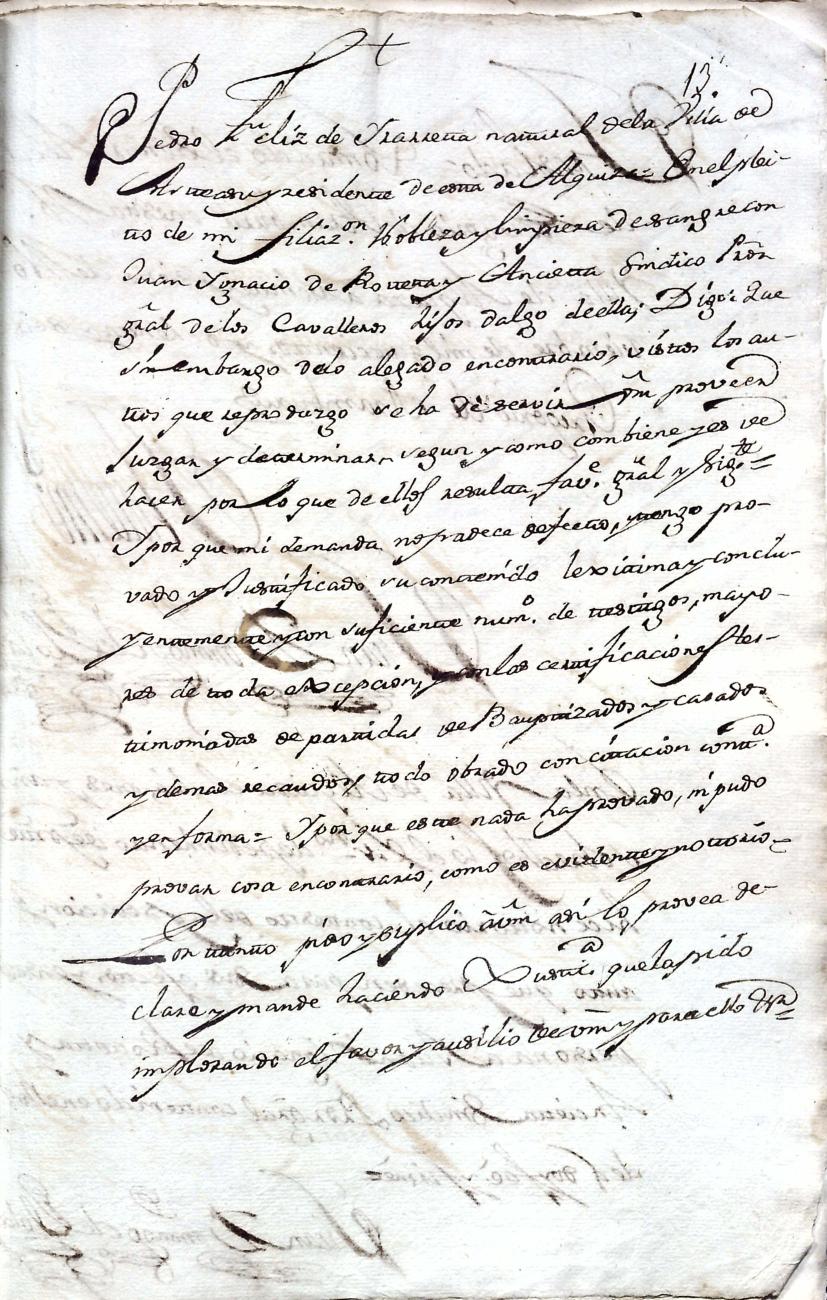 +
13.
Pedro Feliz de Yrarreta natural dela Villa de
Asteasu y residente de esta de Alquiza = En el plei-
tto de mi filiaz.on Nobleza y limpieza de sangre con
Juan Ygnacio de Rotteta y Ancietta Sindico Pror
gral delos Cavalleros Hijos dalgo de ella; Digo: Que
sin embargo delo alegado en contrario, vistos los au-
ttos que reproduzgo se ha de servir Vm proveer
Juzgar y determinar, segun y como combiene y es de
hacer por lo que de ellos resulta, fav.e gral y sig.te =
Y por que mi demanda no padece defecto, y tengo pro-
vado y Justificado su contenido lexitima y conclu-
yentemente y con suficiente num.o de testigos, mayo-
res de toda excepcion, y con las certificaciones tes-
timoniadas de partidas de Baptizados y casados
y demas recaudos, todo obrado con cittacion contr.a
y en forma = Y por que este nada ha provado, ni pudo
provar cosa en contrario, como es evidente y nottorio
Por tanto pido y suplico a Vm asi lo provea de-
clare y mande haciendo Justic.a que la pido
implorando el favor y auxilio de Vm y para ello &r =